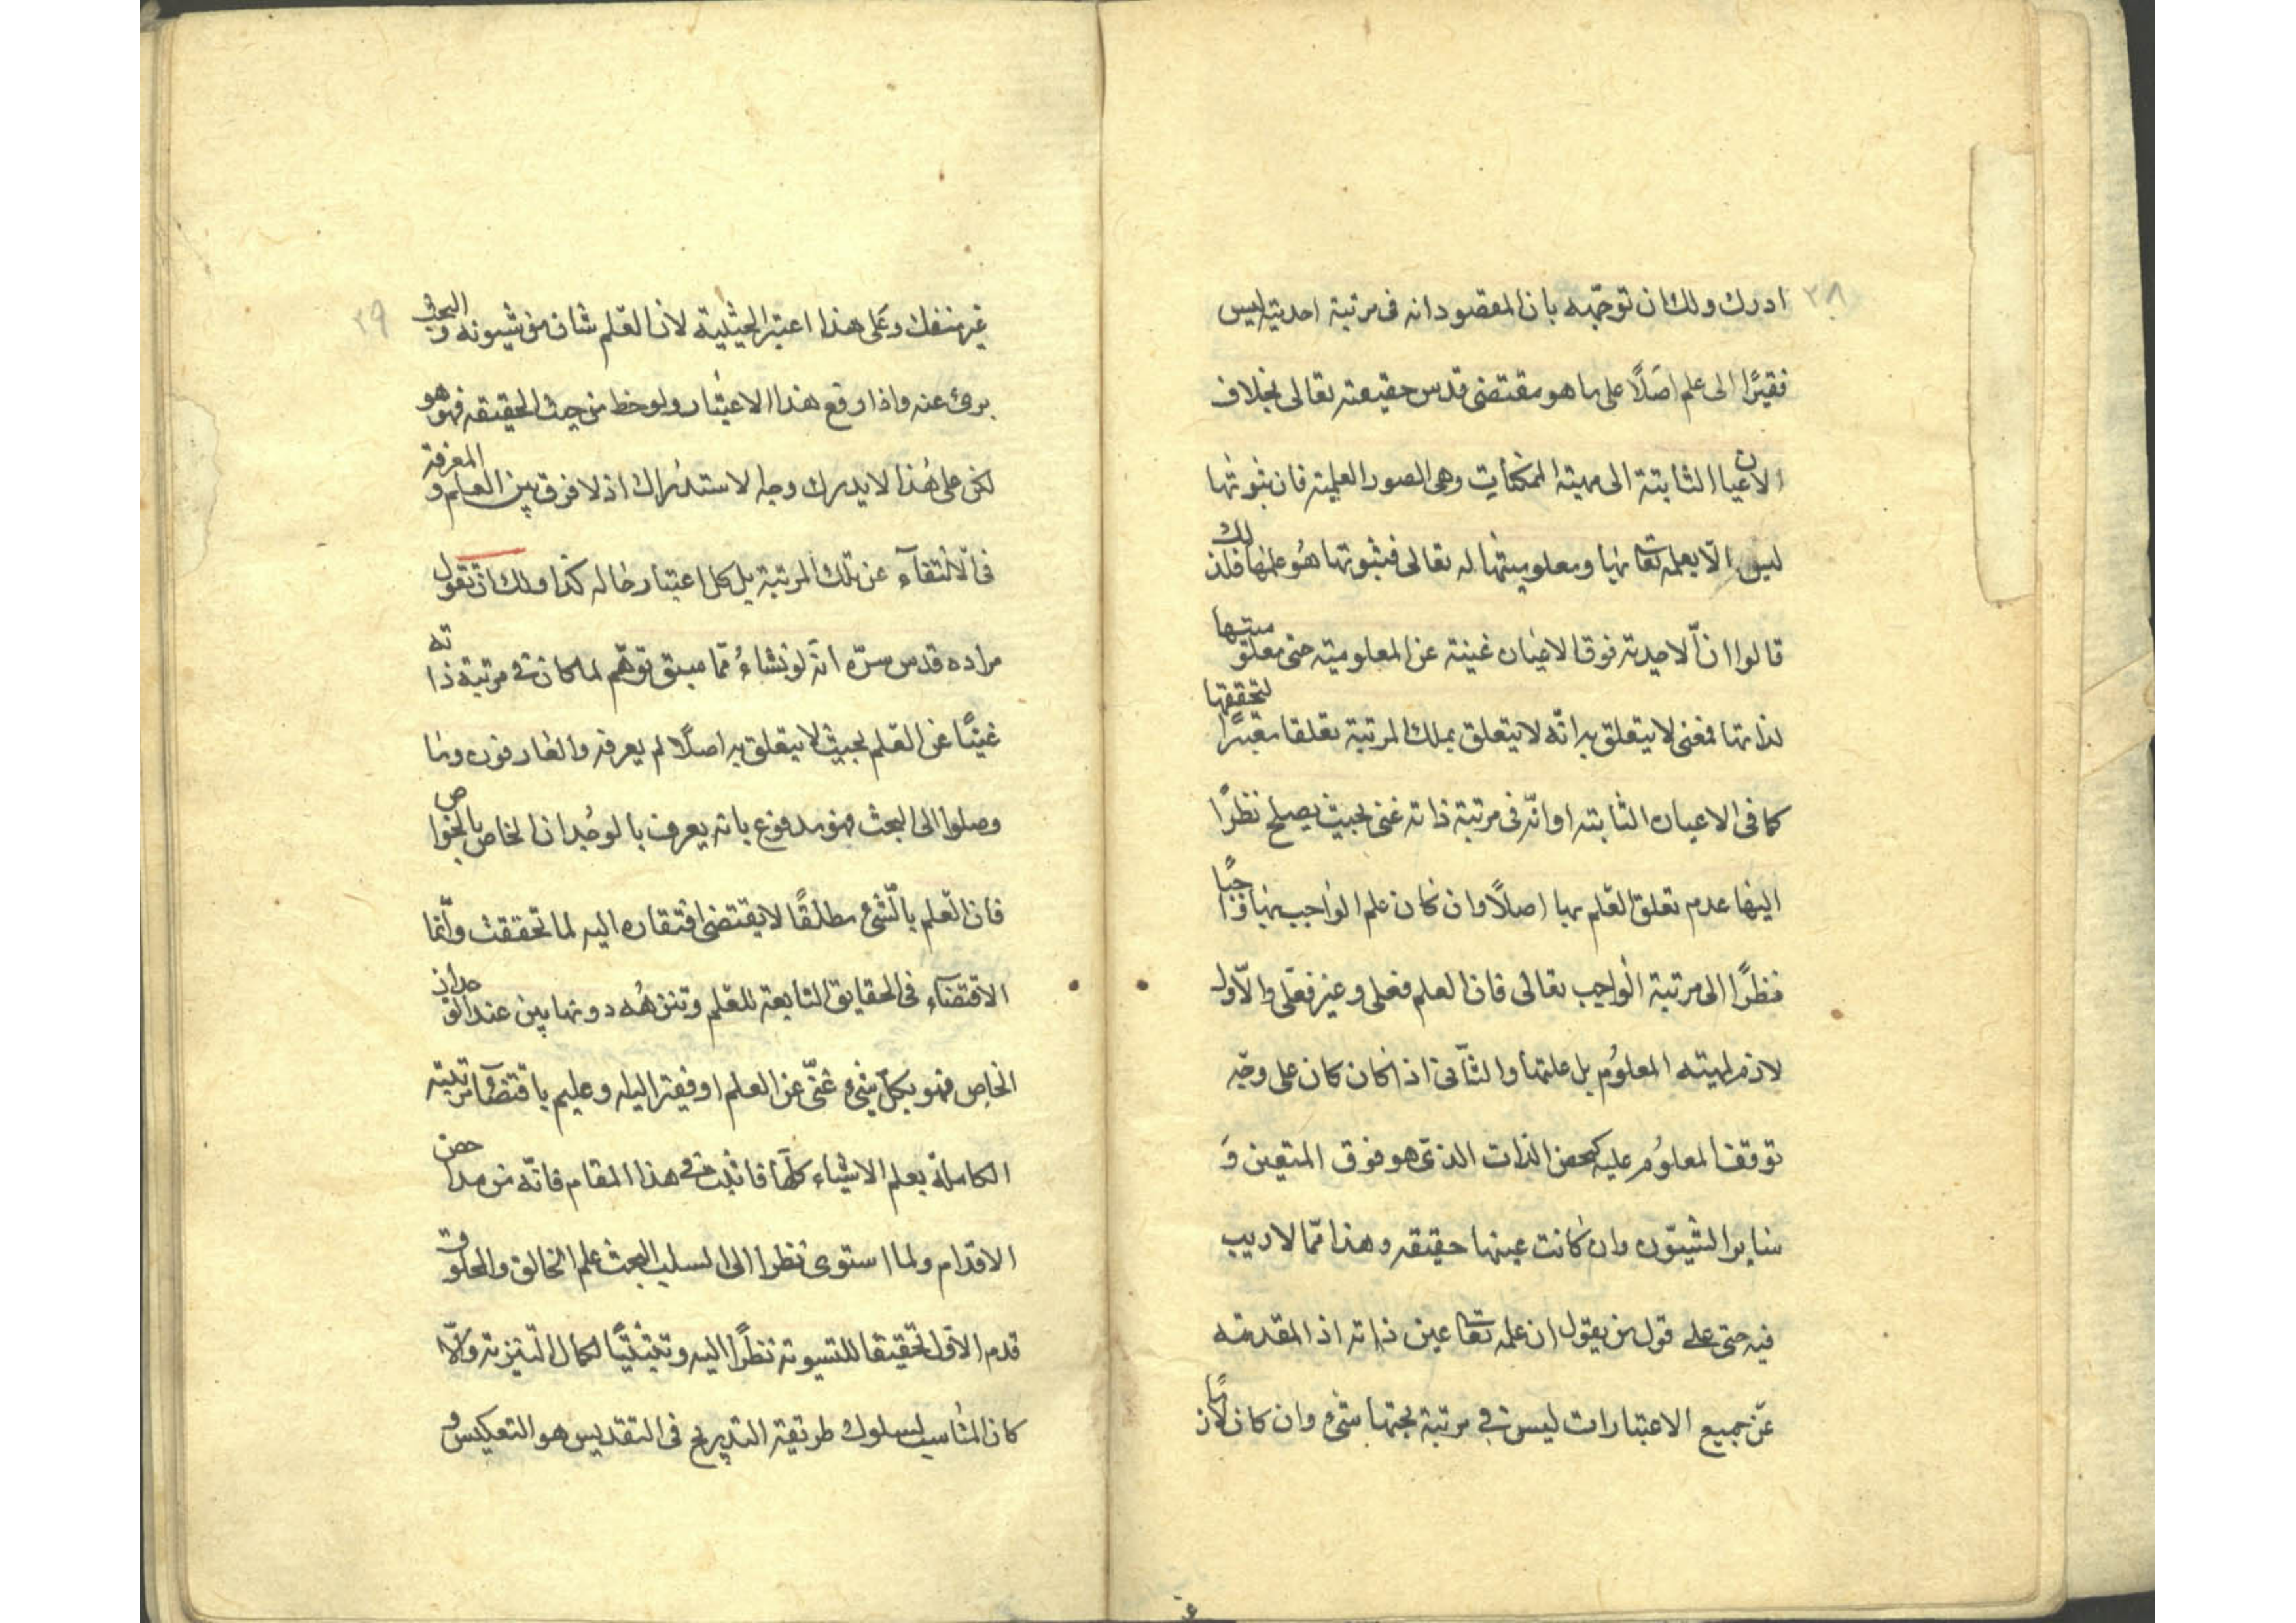 ٢٨
ادرك ولك ان توجّهه بان المقصود انه فى مرتبة احديته ليس
فقيرًا الى علم اصلًا على ما هو مقتضى قدس حقيقته تعالى بخلاف
الاعيان الثابتة الى مهية الممكنات وهى الصور العلمية فان ثبوتها
ليس الّا بعلمه تعا بها ومعلوميتها له تعالى فثبوتها هو علمها فلذلك
قالوا انّ الاحدية فوق الاعيان غنية عن المعلومية حتى معلوميتها
لذاتها فمعنى لا يتعلق به انّه لا يتعلق بملك المرتبة تعلقا معتبرًا لتحققها
كما فى الاعيان الثابته او انّه فى مرتبة ذاته غنى بحيث يصلح نظرًا
اليها عدم تعلق العلم بها اصلًا وان كان علم الواجب بها واجبًا
نظرًا الى مرتبة الواجب تعالى فان العلم فعلى وغير فعلى والاّول
لازم لمهيته المعلوم بل علتها والثّانى اذا كان كان على وجّه
توقف المعلوم عليه كمحض الذات الذى هو فوق المتعين وَ
سٰاير الشيّون وان كانت عينها حقيقه وهذا ممّا لا ريب
فيه حتى على قول من يقول ان علمه تعا عين ذاته اذ المقدسة
عن جميع الاعتبارات ليس فى مرتبة بحتها شىء وان كان لازمًا
٢٩
غير منفك وعلى هذا اعتبر الحيثية لان العلم شان من شيونه والبحث
برىء عنه واذا وقع هذا الاعتبار ولوحظ من حيث الحقيقه فهو هو
لكن على هذا لا يدرك وجه الاستدراك اذ لا فرق بين العلم والمعرفة
فى الانتقآء عن تلك المرتبة بل كل اعتبار حاله كذا ولك ان تقول
مراده قدس سرّه انّه لو نشاءُ ممّا سبق توهّم لما كان فى مرتبة ذاته
غنيًّا عن العلم بحيث لا يتعلق به اصلًا لم يعرفه والعارفون وما
وصلوا الى البحث فهو مدفوع بانه يعرف بالوجدان الخاص بالخواص
فان العلم بالشّىء مطلقًا لا يقتضى افتقاره اليه لما تحققت وانّما
الاقتضاء فى الحقايق التابعة للعلم وتنزهُه دونها بين عند الوجدان
الخاص فهو بكل شىء غنىّ عن العلم او فيقر اليه وعليم باقتضاء مرتبته
الكاملة يعلم الاشياء كلّها فاثبت فى هذا المقام فانّه من مداحض
الاقدام ولما استوى نظرا الى السلب البحث علم الخالق والمخلوق
قدم الاول تحقيقا للتسوية نظرًا اليه وتثبتيًا لكمال التنزيه والّا
كان المناسب لسلوك طريقة التدريج فى التقديس هو التعكيس و